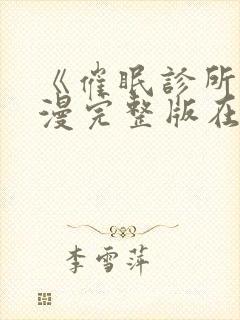 《催眠診所
漫完整版在
李雪萍